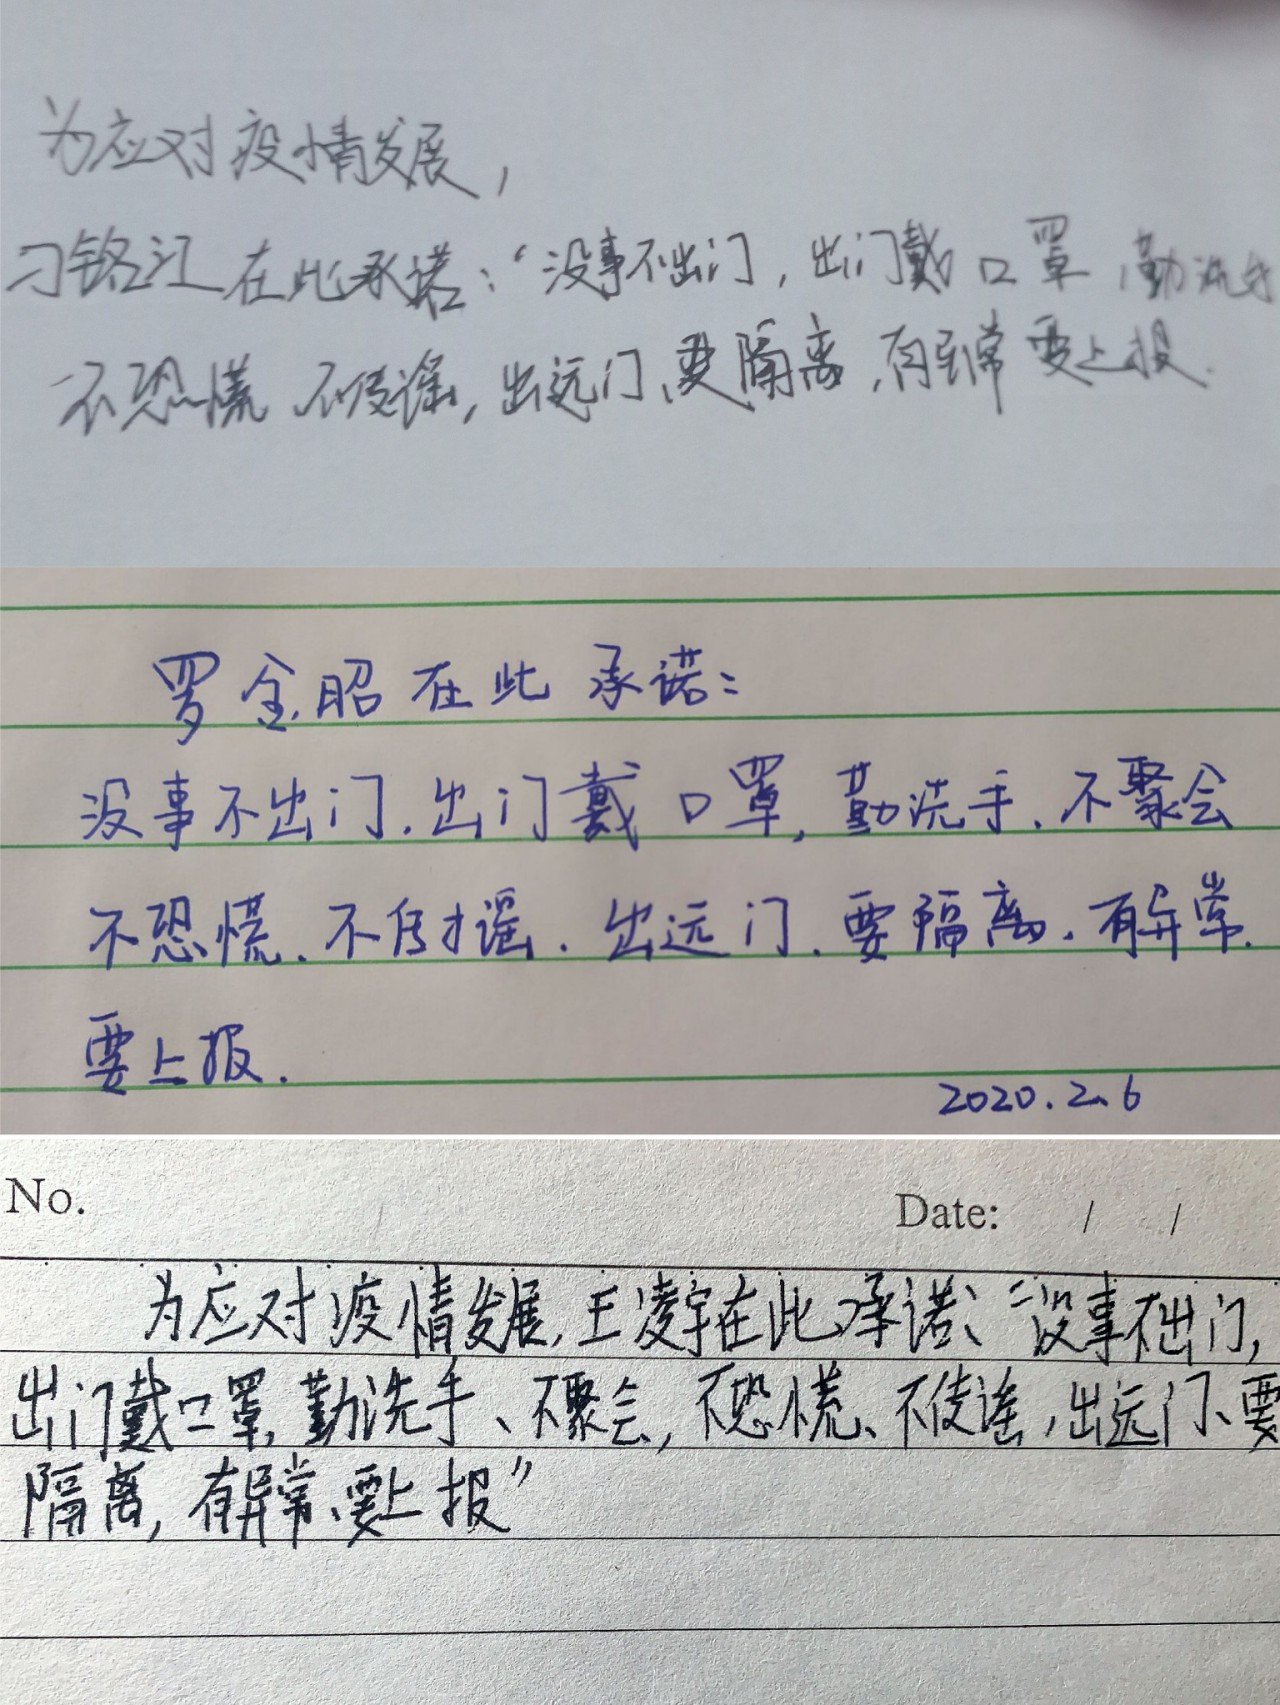 为应对疫情发展，
刁铭江在此承诺：“没事不出门，出门戴口罩，勤洗手
不恐慌 不传谣，出远门、要隔离，有异常 要上报.
罗金昭在此承诺：
没事不出门.出门戴口罩,勤洗手.不聚会
不恐慌.不传谣.出远门.要隔离.有异常.
要上报.
2020.2.6
No. Date: / /
为应对疫情发展,王凌宇在此承诺、“没事不出门,
出门戴口罩,勤洗手、不聚会,不恐慌、不传谣,出远门、要
隔离,有异常、要上报”